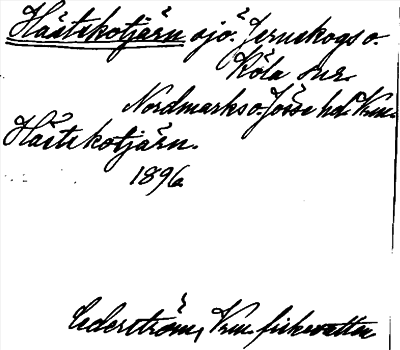 Hästskotjärn sjö. Jernskogs o.
Köla snr
Nordmarks o. Jösse hd Vrm.
Hästskotjärn.
1896
Cederström, Vrm fiskevatten